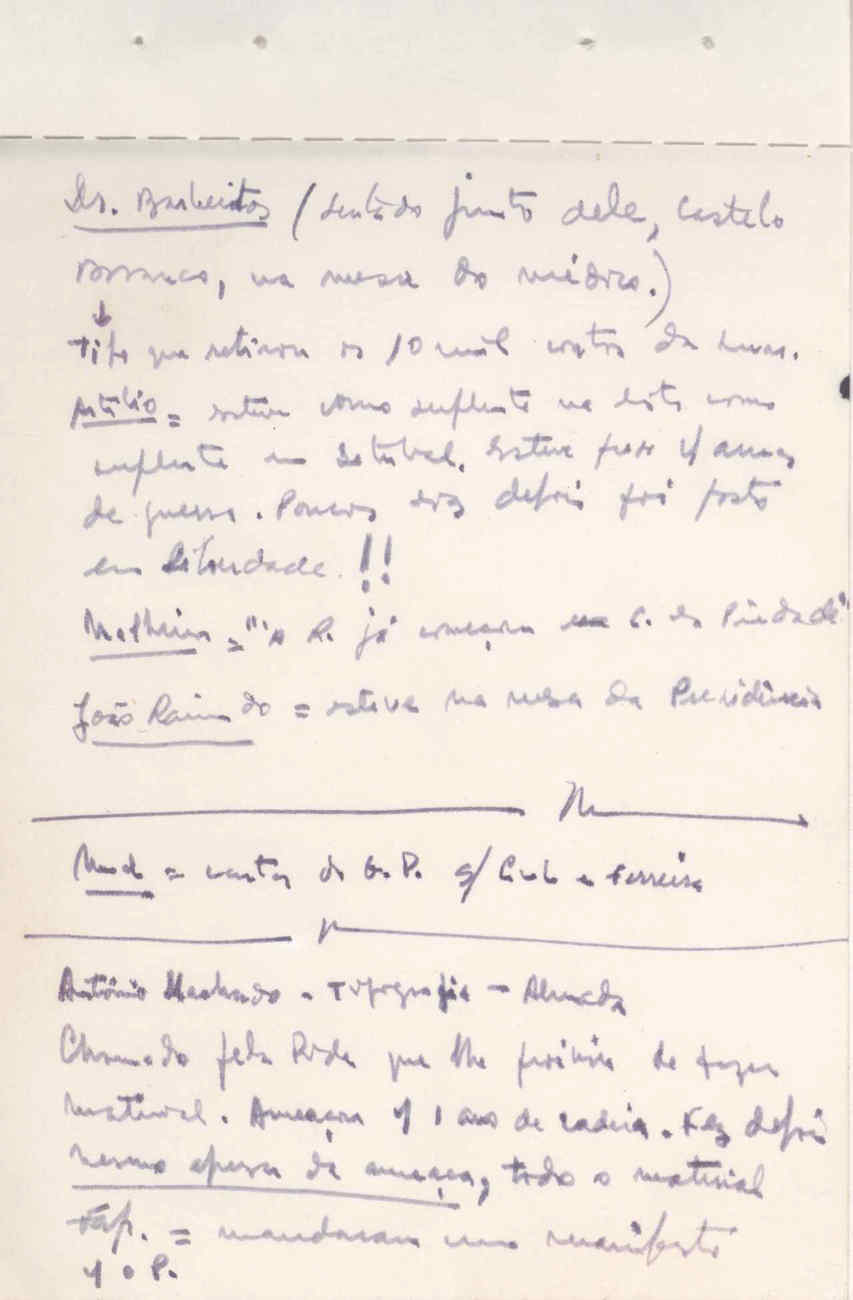 Dr. Barbeitos (sentado junto dele, Castelo
Branco, na mesa do médico.)
↓
Tipo que retirou os 10 mil contos da
Atílio = esteve como suplente na lista como
suplente em Setúbal. Esteve preso 4 anos
de guerra. Poucos dias depois foi posto
em liberdade. !!
Matheus = "A R. já começou C. da Piedade"
João Raimundo = esteve na mesa da Presidência
= cartas do G. P. s/ e Ferreira
António Machado - Tipografia - Almada
Chamado pela Pide que lhe proibiu de fazer
material. Ameaçou 1 ano de cadeia. Fez depois
mesmo apesar da ameaça, todo o material
= mandaram um manifesto
o P.